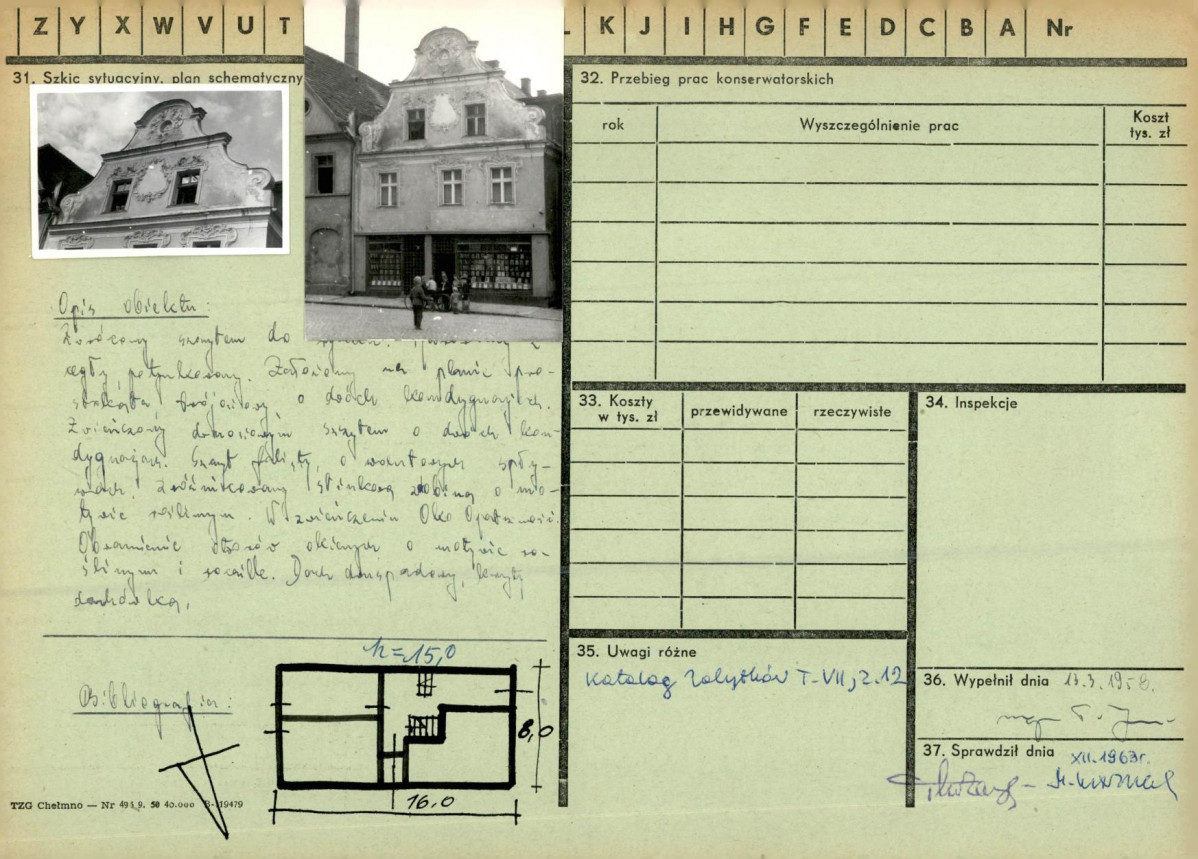 Z Y X W V U T K J I H G F E D C B A Nr
31. Szkic sytuacyjny, plan schematyczny
Opis obiektu:
Zwrócony szczytem do
cegły, potynkowany. Założony na planie pro-
stokąta, trójosiowy, o dwóch kondygnacjach.
Zwieńczony szczytem o dwóch kon-
dygnacjach. Szczyt falisty, o wolutowych spły-
wach. Zróżnicowany stiukową o mo-
tywie roślinnym. W zwieńczeniu Oko Opatrzności.
Obramienie otworów okiennych o motywie ro-
ślinnym i rocaille. Dach dwuspadowy, kryty
dachówką.
Bibliografia:
h=15,0
8,0
16.0
TZG Chełmno — Nr 40.000
32. Przebieg prac konserwatorskich
rok Wyszczególnienie prac Koszt
tys. zł
33. Koszty
w tys. zł przewidywane rzeczywiste
34. Inspekcje
35. Uwagi różne
Katalog Zabytków T-VII, z.12
36. Wypełnił dnia 13.3.1958.
mgr
37. Sprawdził dnia
XII.1963r.